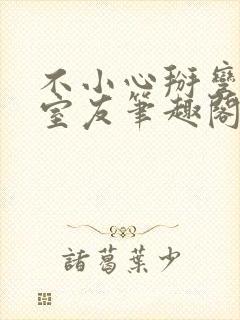 不小心掰彎
室友筆趣閣
諸葛葉少